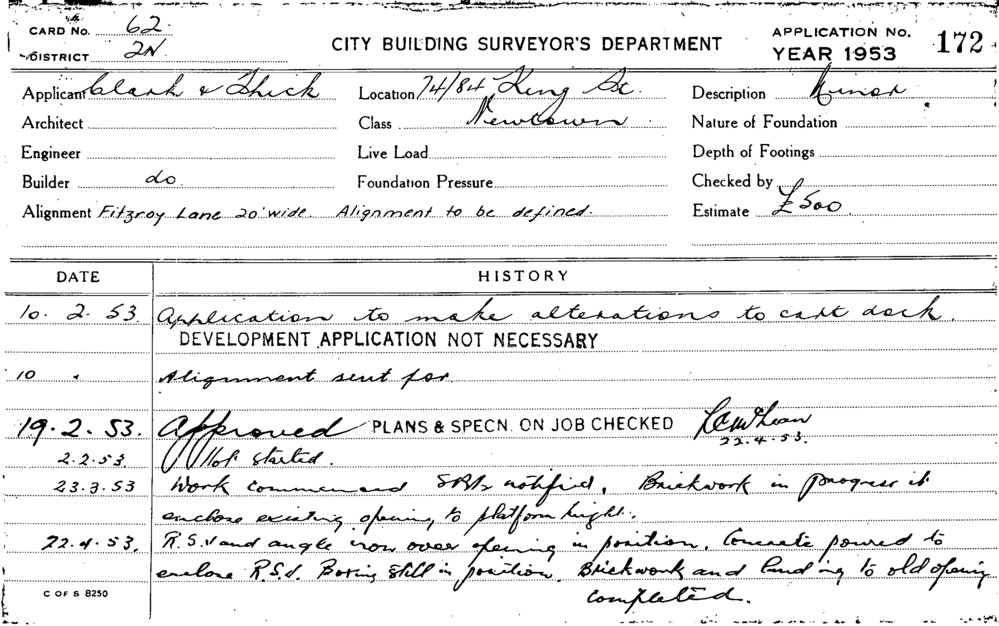 CARD No. 62
DISTRICT 2N.
CITY BUILDING SURVEYOR'S DEPARTMENT
APPLICATION No.
YEAR 1953
172
Applicant Clark & Thick
Location 74/84 King St.
Description Minor
Architect
Class Newtown
Nature of Foundation
Engineer
Live Load
Depth of Footings
Builder do
Foundation Pressure
Checked by
Alignment Fitzroy Lane 20' wide. Alignment to be defined.
Estimate £500
DATE
HISTORY
10. 2. 53. Application to make alterations to cart dock.
DEVELOPMENT APPLICATION NOT NECESSARY
10 " Alignment sent for
19. 2. 53. Approved PLANS & SPECN. ON JOB CHECKED
22.4.53.
2.2.53. Not started.
23.3.53 Work commenced notified. Brickwork in progress
enclose existing opening, to platform height.
22.4.53. R.S.J and angle iron over opening in position. Concrete poured to
enclose R.S.J. Boxing still in position. Brickwork and to old opening
completed.
C OF S 8250